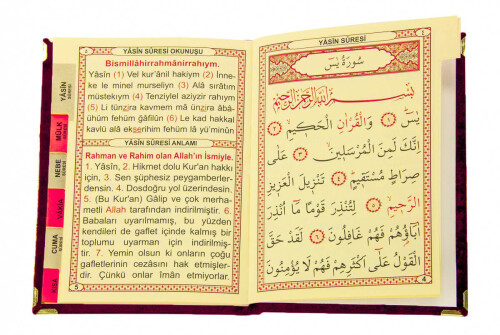 YÂSİN SÛRESİ OKUNUŞU
Bismillâhirrahmânirrahıym.
Yâsîn (1) Vel kur'ânil hakiym (2) İnne-
ke le minel murseliyn (3) Alâ sırâtım
müstekıym (4) Tenziylel aziyzir rahıym
(5) Li tünzira kavmem mâ ünzira âbâ-
ühüm fehüm ğâfilün (6) Le kad hakkal
kavlü alâ ekserihim fehüm lâ yü'minün
YÂSİN SÛRESİ ANLAMI
Rahman ve Rahim olan Allah'ın İsmiyle.
1. Yâsin, 2. Hikmet dolu Kur'an hakkı
için, 3. Sen şüphesiz peygamberler-
densin. 4. Dosdoğru yol üzerindesin.
5. (Bu Kur'an) Gâlip ve çok merha-
metli Allah tarafından indirilmiştir. 6.
Babaları uyarılmamış, bu yüzden
kendileri de gaflet içinde kalmış bir
toplumu uyarman için indirilmiş-
tir. 7. Yemin olsun ki onların çoğu
gafletlerinin cezasını hak etmişler-
dir. Çünkü onlar iman etmiyorlar.
5
YÂSİN
SÛRESİ
MÜLK
NEBE
SÛRESİ
VAKIA
CUMA
SÛRESİ
KISA
YÂSİN SÛRESİ
سورة يس
بسم الله الرحمن الرحيم
يس ﴿١﴾ وَالْقُرْاٰنِ الْحَكِيمِ ﴿٢﴾
اِنَّكَ لَمِنَ الْمُرْسَلِينَ ﴿٣﴾ عَلٰى
صِرَاطٍ مُسْتَقِيمٍ ﴿٤﴾ تَنْزِيلَ الْعَزِيزِ
الرَّحِيمِ ﴿٥﴾ لِتُنْذِرَ قَوْمًا مَا اُنْذِرَ
اٰبَاؤُهُمْ فَهُمْ غَافِلُونَ ﴿٦﴾ لَقَدْ حَقَّ
الْقَوْلُ عَلٰى اَكْثَرِهِمْ فَهُمْ لَا يُؤْمِنُونَ
4